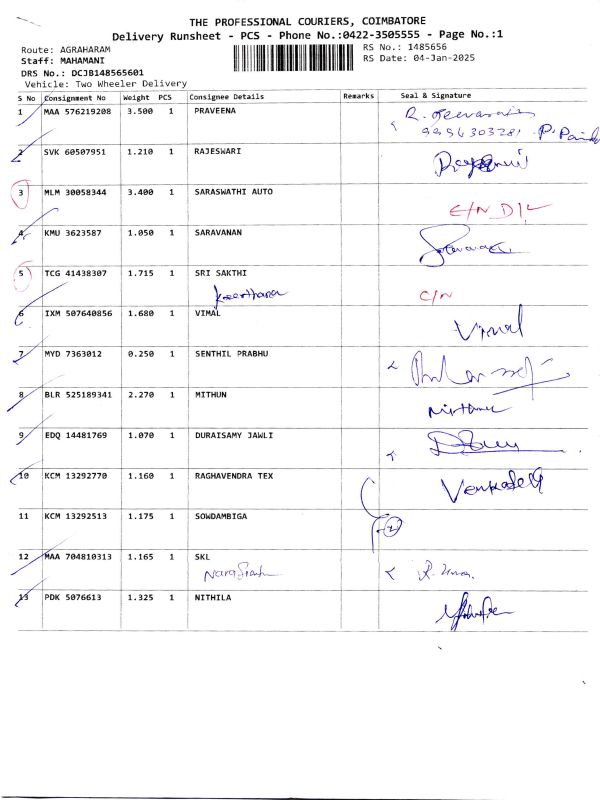 THE PROFESSIONAL COURIERS, COIMBATORE
Delivery Runsheet - PCS - Phone No.:0422-3505555 - Page No.:1
Route: AGRAHARAM RS No.: 1485656
Staff: MAHAMANI RS Date: 04-Jan-2025
DRS No.: DCJB148565601
Vehicle: Two Wheeler Delivery
S No Consignment No Weight PCS Consignee Details Remarks Seal & Signature
1 MAA 576219208 3.500 1 PRAVEENA
9994303281
2 SVK 60507951 1.210 1 RAJESWARI
3 MLM 30058344 3.400 1 SARASWATHI AUTO
4 KMU 3623587 1.050 1 SARAVANAN
5 TCG 41438307 1.715 1 SRI SAKTHI
Keerthana C/N
6 IXM 507640856 1.680 1 VIMAL Vimal
7 MYD 7363012 0.250 1 SENTHIL PRABHU
8 BLR 525189341 2.270 1 MITHUN
9 EDQ 14481769 1.070 1 DURAISAMY JAWLI
10 KCM 13292770 1.160 1 RAGHAVENDRA TEX
11 KCM 13292513 1.175 1 SOWDAMBIGA
2
12 MAA 704810313 1.165 1 SKL
13 PDK 5076613 1.325 1 NITHILA